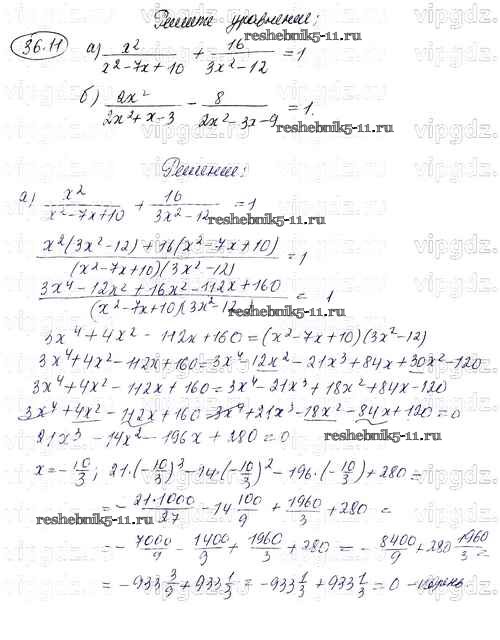 Решите уравнения:
36.11 а) x²/(x²-7x+10) + 16/(3x²-12) = 1
б) 2x²/(2x²+x-3) - 8/(2x²-3x-9) = 1.
reshebnik5-11.ru
reshebnik5-11.ru
Решение:
а) x²/(x²-7x+10) + 16/(3x²-12) = 1
reshebnik5-11.ru
(x²(3x²-12)+16(x²-7x+10))/((x²-7x+10)(3x²-12)) = 1
(3x⁴-12x²+16x²-112x+160)/((x²-7x+10)(3x²-12)) = 1
reshebnik5-11.ru
3x⁴+4x²-112x+160=(x²-7x+10)(3x²-12)
3x⁴+4x²-112x+160=3x⁴-12x²-21x³+84x+30x²-120
3x⁴+4x²-112x+160=3x⁴-21x³+18x²+84x-120
3x⁴+4x²-112x+160-3x⁴+21x³-18x²-84x+120=0
21x³-14x²-196x+280=0
reshebnik5-11.ru
x=-10/3; 21·(-10/3)³-14·(-10/3)²-196·(-10/3)+280=
=-21·1000/27-14·100/9+1960/3+280=
reshebnik5-11.ru
=-7000/9-1400/9+1960/3+280=-8400/9+280+1960/3=
=-933 3/9+933 1/3=-933 1/3+933 1/3=0 - корень